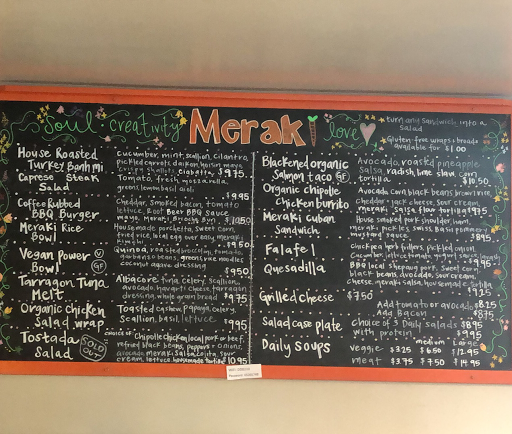 Soul · creativity Meraki love
turn any sandwich into a salad
Gluten-free wraps & breads available for $1.00
House Roasted Turkey Banh mi
Cucumber, mint, scallion, cilantro,
pickled carrots, daikon, hoisin mayo,
crispy shallots, ciabatta, $9.75
Caprese Steak Salad
Tomato, fresh mozzarella,
greens, lemon basil aioli
Coffee Rubbed BBQ Burger
Cheddar, Smoked bacon, tomato,
lettuce, Root Beer BBQ Sauce
$10.50
Meraki Rice Bowl
House made porchetta, sweet corn,
fried rice, local egg over easy, meraki
kimchi $9.50
Vegan Power Bowl V GF
Quinoa, roasted broccoli,
garbanzo beans, greens, rice noodles
coconut agave dressing $9.50
Tarragon Tuna Melt
Albacore tuna, celery, scallion,
avocado, havarti cheese,
dressing, whole grain bread $9.75
Organic chicken Salad wrap
Toasted cashew, papaya, celery,
Scallion, basil, lettuce $9.95
Tostada Salad SOLD OUT
choice of chipotle chicken, local pork or beef,
refried black beans, peppers & onions,
avocado, meraki salsa, cojita, sour
cream, lettuce, housemade tortilla $10.95
Blackened organic Salmon taco GF
Avocado, roasted pineapple
Salsa, radish, lime slaw, corn
tortilla $10.50
Organic chipotle Chicken burrito
Avocado, Corn, black beans, brown rice,
cheddar & jack cheese, sour cream,
meraki salsa, flour tortilla $9.75
Meraki Cuban Sandwich
House smoked pork shoulder, ham,
meraki pickles, swiss, Basil pommery
mustard sauce $8.95
Falafel
chickpea herb fritters, pickled onion,
Cucumber, lettuce, tomato, yogurt sauce, lavash
$9.95
Quesadilla
BBQ local shepaug pork, sweet corn,
black beans, avocado, sour cream,
cheese, meraki salsa, housemade tortilla
$9.25
Grilled cheese $7.50
Add tomato or avocado $8.25
Add Bacon $8.75
Salad case plate
choice of 3 Daily salads $8.95
with protein $9.95
Daily Soups
medium Large
veggie $3.25 $6.50 $12.95
meat $3.75 $7.50 $14.95